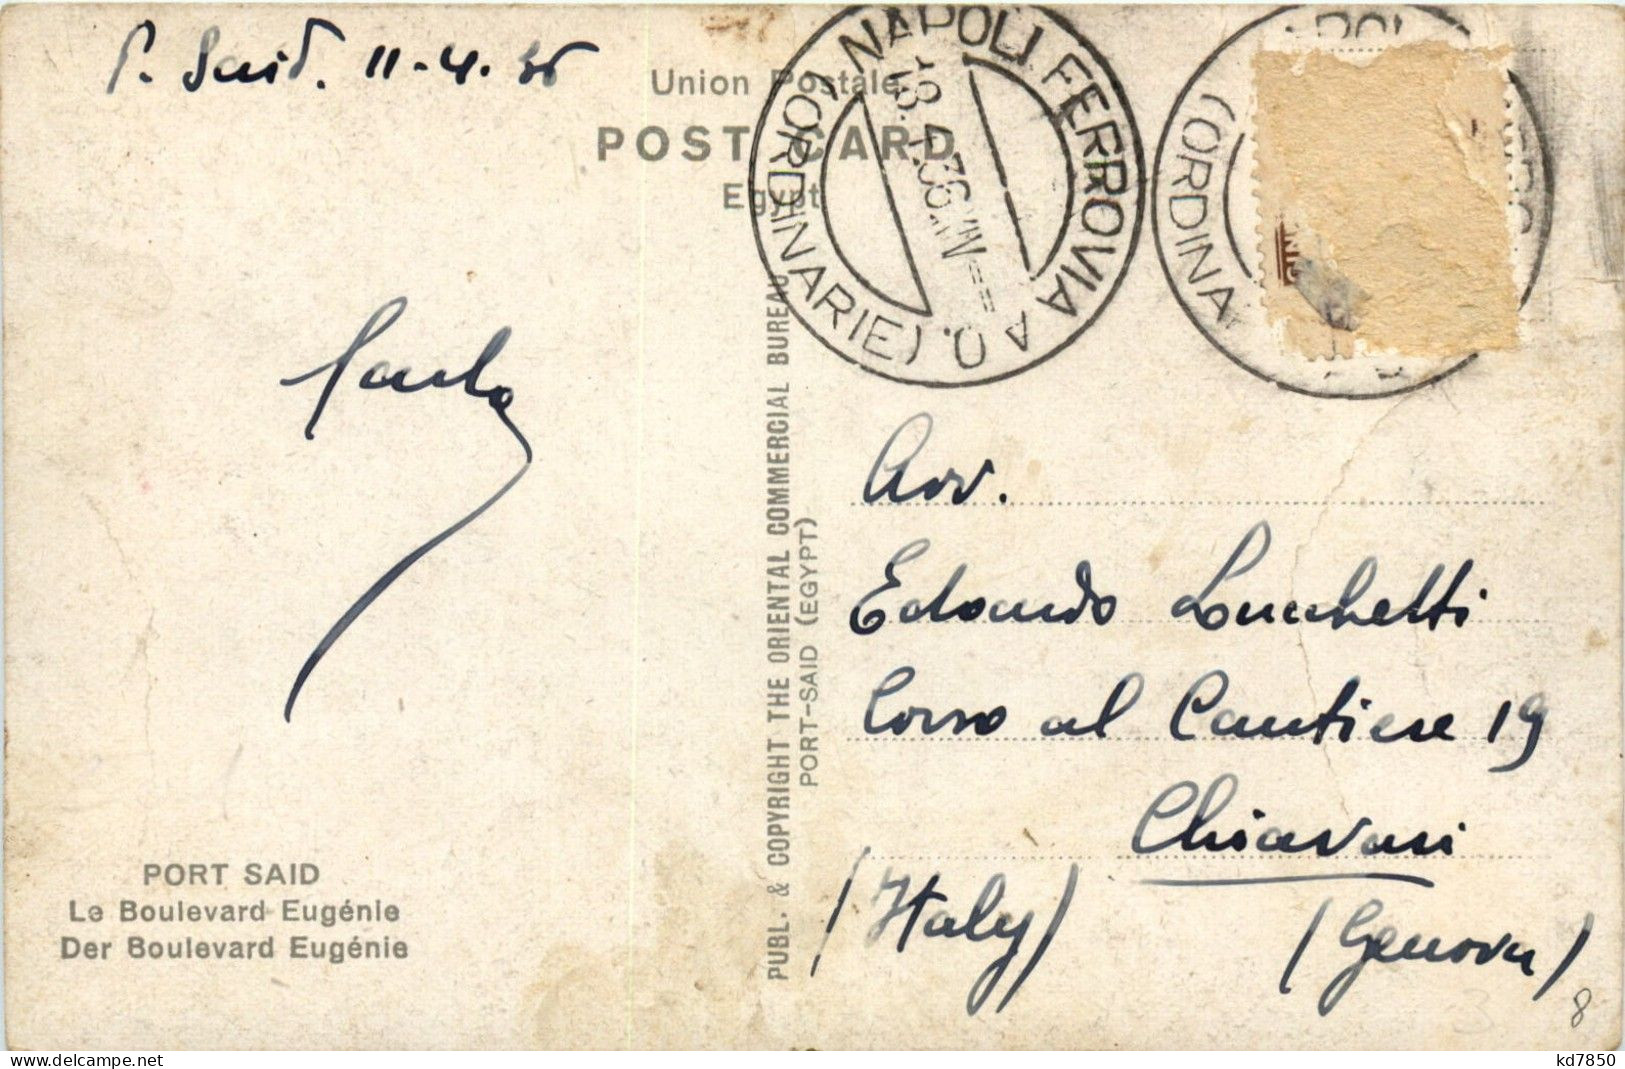 P. Said. 11-4.36
Union Postale
POST CARD
Egypt
NAPOLI FERROVIA A. O. (ORDINARIE)
18.4.36 XIV
(ORDINA
PUBL. & COPYRIGHT THE ORIENTAL COMMERCIAL BUREAU
PORT-SAID (EGYPT)
Avv.
Edoardo Lucchetti
Corso al Cantiere 19
Chiavari
(Italy) (Genova)
PORT SAID
Le Boulevard Eugénie
Der Boulevard Eugénie
8
kd7850